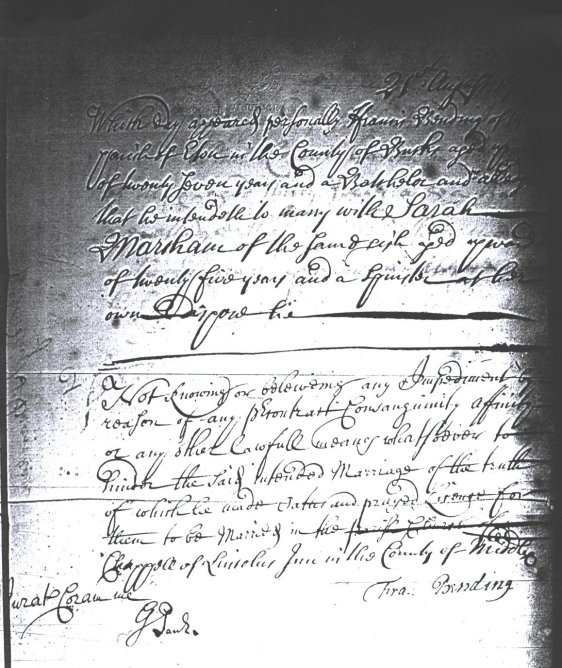 21th August
Which day appeared personally Francis Bending of
parish of Eton in the County of Bucks aged
of twenty seven years and a Batchelor and
that he intendeth to marry with Sarah
Marsham of the same aged upwards
of twenty five years and a Spinster at her
own
Not Knowing or beleiveing any Impediment by
reason of any Precontract Consanguinity affinity
or any other lawfull means whatsoever to
hinder the said intended Marriage of the truth
of which he made Oath and prayed Licence for
them to be Married in the
Chappell of Lincolns Inn in the County of Middx
Fra: Bending
Jurat Coram me